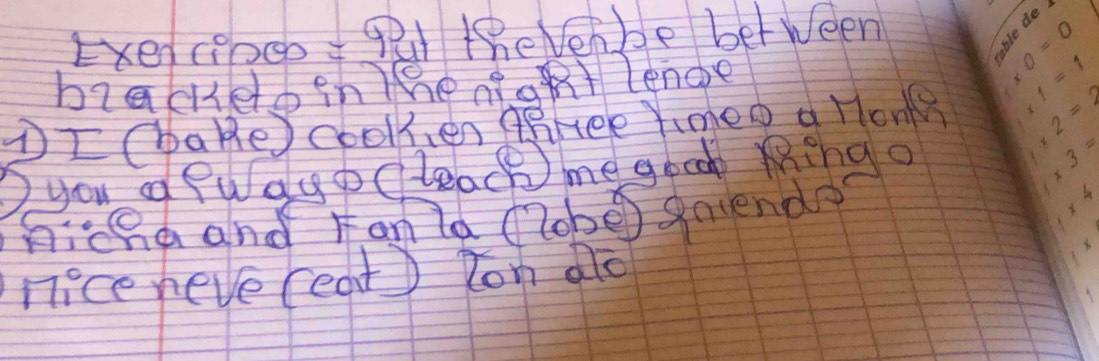 Exercises = Put the verbe between
brackets in the right tense
1) I (bake) cookies three times a Month
) you always (teach) me good things
) Micha and Fanta (tobe) friends
) Mice neve (eat)
table de 1
1 x 0 = 0
1 x 1 = 1
1 x 2 = 2
1 x 3 =
1 x 4
1 x
1